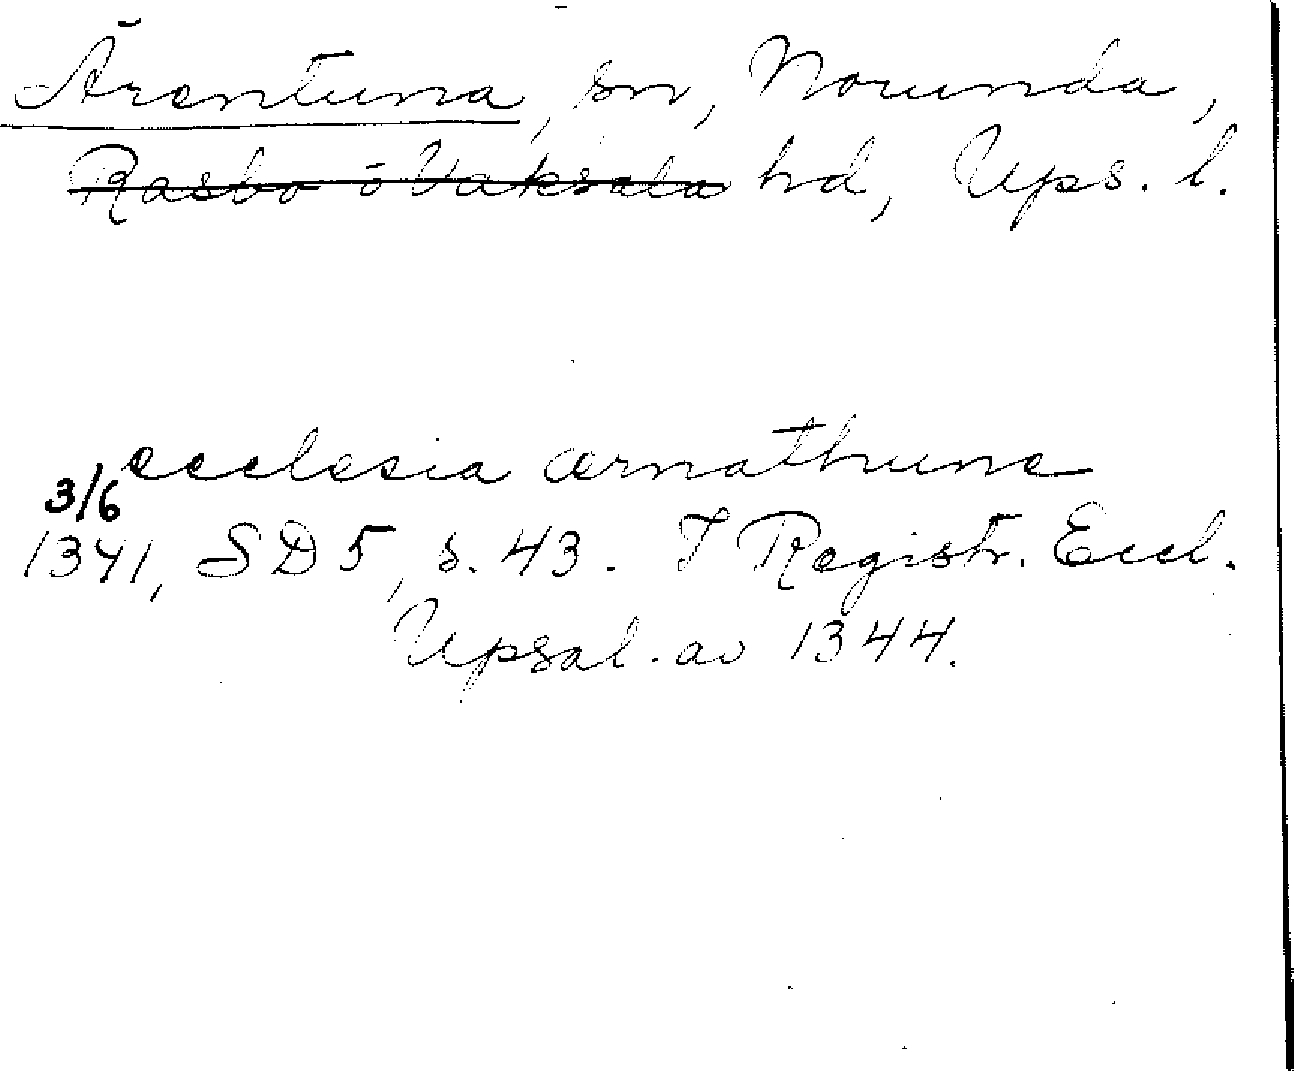 Ärentuna, sn, Norunda,
Rasbo o Vaksala hd, Ups. l.
ecclesia ærnathune
3/6
1341, SD 5, s. 43. I Registr. Eccl.
Upsal. av 1344.